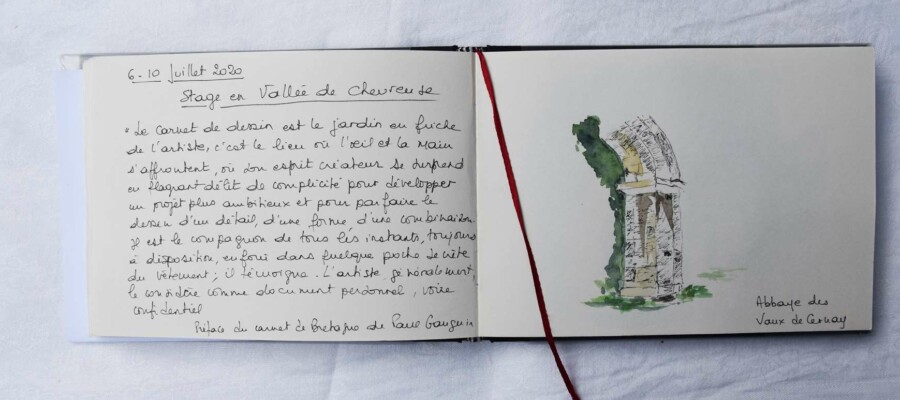 6-10 Juillet 2020
Stage en Vallée de Chevreuse
"Le carnet de dessin est le jardin en friche
de l'artiste, c'est le lieu où l'œil et la main
s'affrontent, où son esprit créateur se surprend
en flagrant délit de complicité pour développer
un projet plus ambitieux et pour parfaire le
dessin d'un détail, d'une forme d'une combinaison.
Il est le compagnon de tous les instants, toujours
à disposition, enfoui dans quelque poche secrète
du vêtement ; il témoigne. L'artiste, généralement,
le considère comme document personnel, voire
confidentiel
Préface du carnet de Bretagne de Paul Gauguin
Abbaye des
Vaux de Cernay